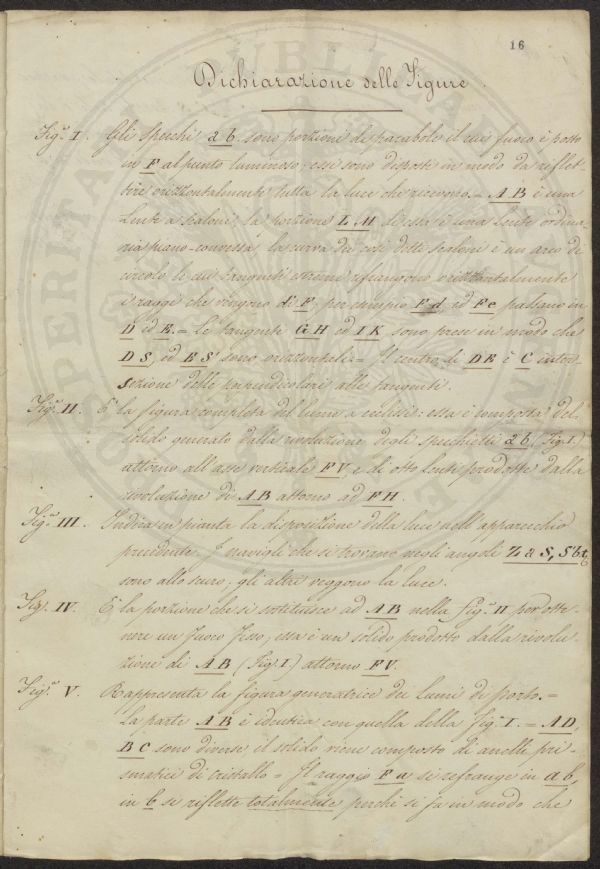 16
Dichiarazione delle Figure
Figª. I. Gli specchi a b. sono porzioni di parabole il cui fuoco è posto
in F al punto luminoso; essi sono disposti in modo da riflet-
tere orizzontalmente tutta la luce che ricevono. A B è una
Lente a scaloni, la porzione L M di essa è una Lente ordina-
ria piano-convessa, la curva dei così detti scaloni è un arco di
circolo le cui tangenti estremi rifrangono orizzontalmente
i raggi che vengono di F, per esempio F d ed F e passano in
D ed E. = Le tangenti G H ed I K sono prese in modo che
D S, ed E S' sono orizzontali. = Il centro di D E è C inter-
sezione delle perpendicolari alle tangenti.
Figª. II. È la figura completa del lume a eclissi: essa è composta del
solido generato dalla rivoluzione degli specchietti a b (Fig. I.)
attorno all'asse verticale F V, e di otto Lenti prodotte dalla
rivoluzione di A B attorno ad F H.
Figª. III. Indica in pianta la disposizione della luce nell'apparecchio
precedente. I navigli che si trovano negli angoli Z a S, S b t
sono allo scuro; gli altri veggono la luce.
Figª. IV. È la porzione che si sostituisce ad A B nella Figª. II per otte-
nere un Fuoco Fisso, essa è un solido prodotto dalla rivolu-
zione di A B (Fig. I.) attorno F V.
Figª. V. Rappresenta la figura generatrice dei Lumi di porto. =
La parte A B è identica con quella della Figª. I. = A D,
B C sono diverse, il solido viene composto di anelli pris-
matici di cristallo = Il raggio F a si refrange in a b,
in b si riflette totalmente perchè si fa in modo che